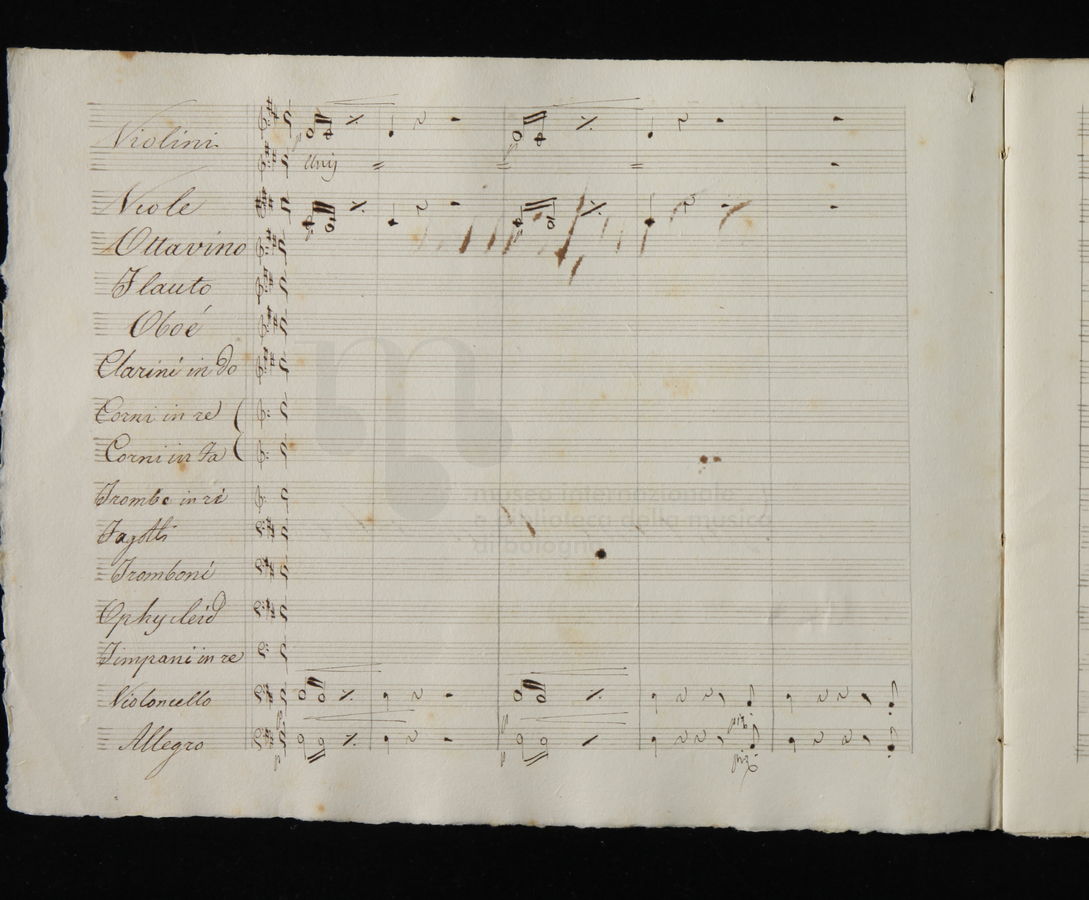 Violini
Unis
Viole
Ottavino
Flauto
Oboé
Clarini in Do
Corni in re
Corni in Fa
Trombe in re
Fagotti
Tromboni
Ophycleid
Timpani in re
Violoncello
piz:
Allegro
piz:
museo internazionale
e biblioteca della musica
di bologna